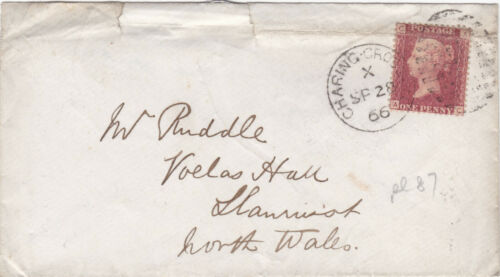 POSTAGE
CHARING-CRO
X
SP 28
66
ONE PENNY
Mr Ruddle
Voelas Hall
Llanrwst
North Wales.
pl 87